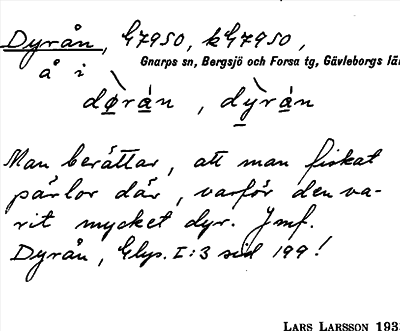 Dyrån, G7950, kG7950,
Gnarps sn, Bergsjö och Forsa tg, Gävleborgs län
å i
dørán, dy̠rán
Man berättar, att man fiskat
pärlor där, varför den va-
rit mycket dyr. Jmf.
Dyrån, Glys. I:3 sid 199!
LARS LARSSON 193